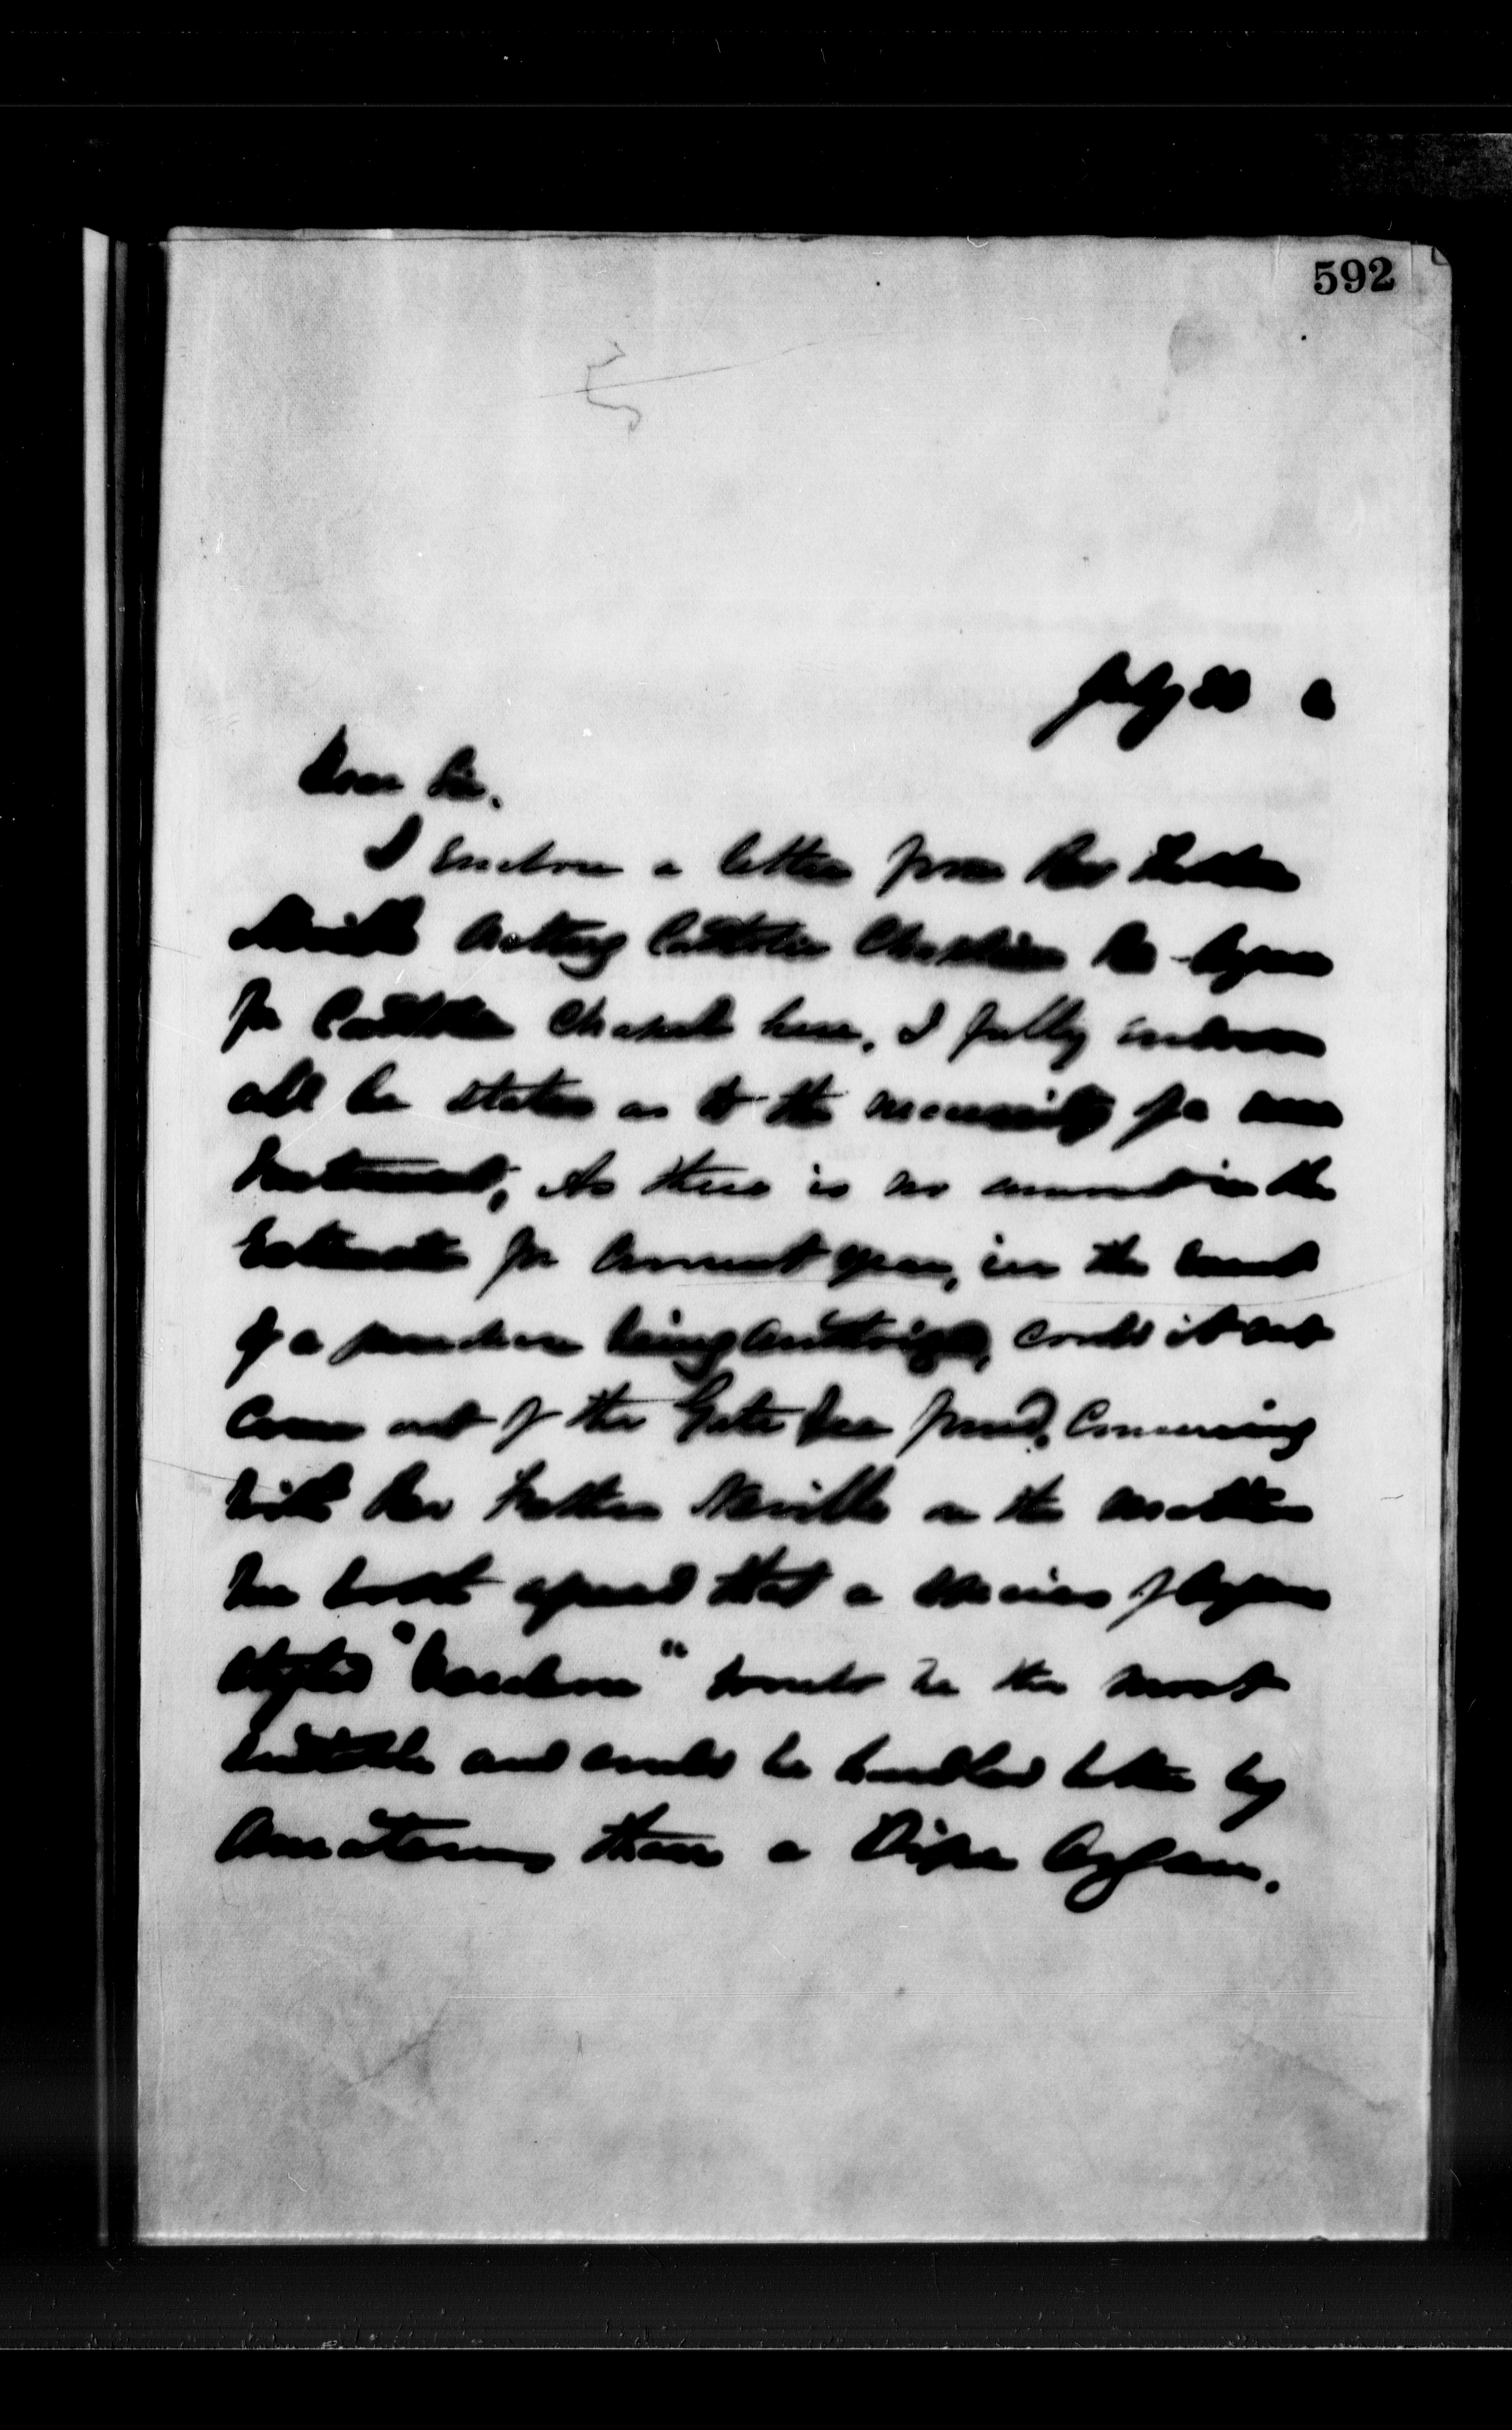 592
July 20 6
Dear Sir.
I enclose a letter from Rev Father
Neville Acting Catholic Chaplain re organ
for Catholic Chapel here. I fully endorse
all he states as to the necessity of a new
Instrument, As there is no amount in the
Estimate for current year, in the event
of a purchase being authorized, could it not
come out of the Gate Fee fund. Conversing
with Rev Father Neville on the matter
we both agreed that a species of organ
styled "Vocalion" would be the most
suitable and could be handled better by
Amateurs than a Pipe Organ.